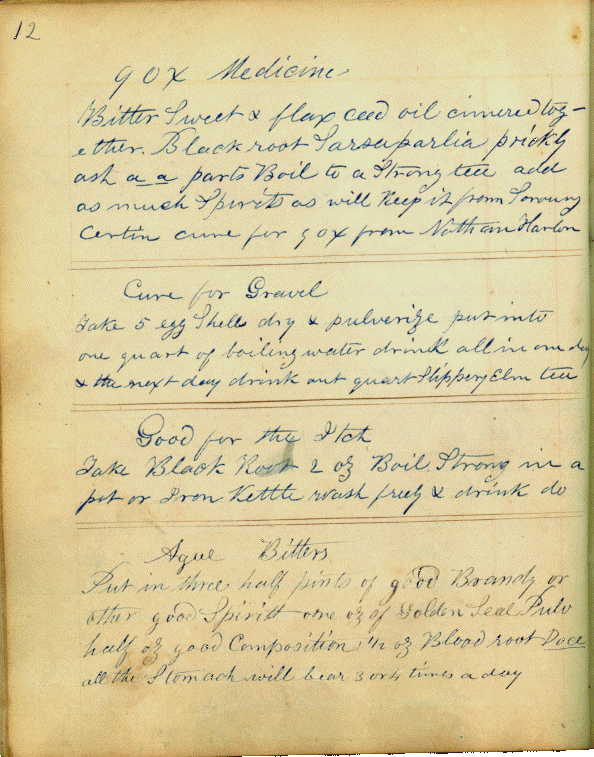 12
9 0 X Medicine
Bitter Sweet & flax ceed oil cimered tog-
ether. Black root Sarsaparlia prickly
ash a a parts Boil to a Strong tea add
as much Spirits as will Keep it from Souring
Certin cure for 9 0 X from Nathan Harlon
Cure for Gravel
Take 5 egg Shells dry & pulverize put into
one quart of boiling water drink all in one day
& the next day drink out quart Slippery Elm tea
Good for the Itch
Take Black Root 2 oz Boil Strong in a
pot or Iron Kettle wash freely & drink do
Ague Bitters
Put in three half pints of good Brandy or
other good Spiritt one oz of Golden Seal Pulv
half oz good Composition 1/2 oz Blood root Doce
all the Stomach will bear 3 or 4 times a day